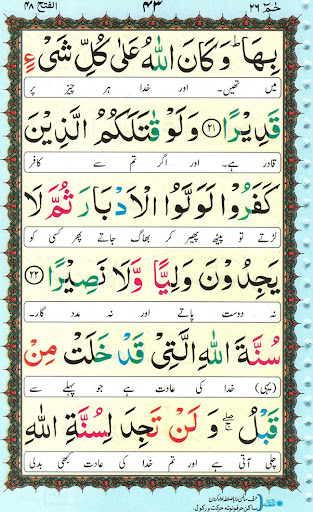 الفتح ٤٨ ٤٣ حٰمٓ ٢٦
بِهَا ؕ وَ كَانَ اللّٰهُ عَلٰى كُلِّ شَیْءٍ
میں تھیں۔ اور خدا ہر چیز پر
قَدِیْرًا ﴿۲۱﴾ وَ لَوْ قٰتَلَكُمُ الَّذِیْنَ
قادر ہے۔ اور اگر تم سے کافر
كَفَرُوْا لَوَلَّوُا الْاَدْبَارَ ثُمَّ لَا
لڑتے تو پیٹھ پھیر کر بھاگ جاتے پھر کسی کو
یَجِدُوْنَ وَلِیًّا وَّ لَا نَصِیْرًا ﴿۲۲﴾
نہ دوست پاتے اور نہ مدد گار۔
سُنَّةَ اللّٰهِ الَّتِیْ قَدْ خَلَتْ مِنْ
(یہی) خدا کی عادت ہے جو پہلے سے
قَبْلُ ۖۚ وَ لَنْ تَجِدَ لِسُنَّةِ اللّٰهِ
چلی آتی ہے اور تم خدا کی عادت کبھی بدلی